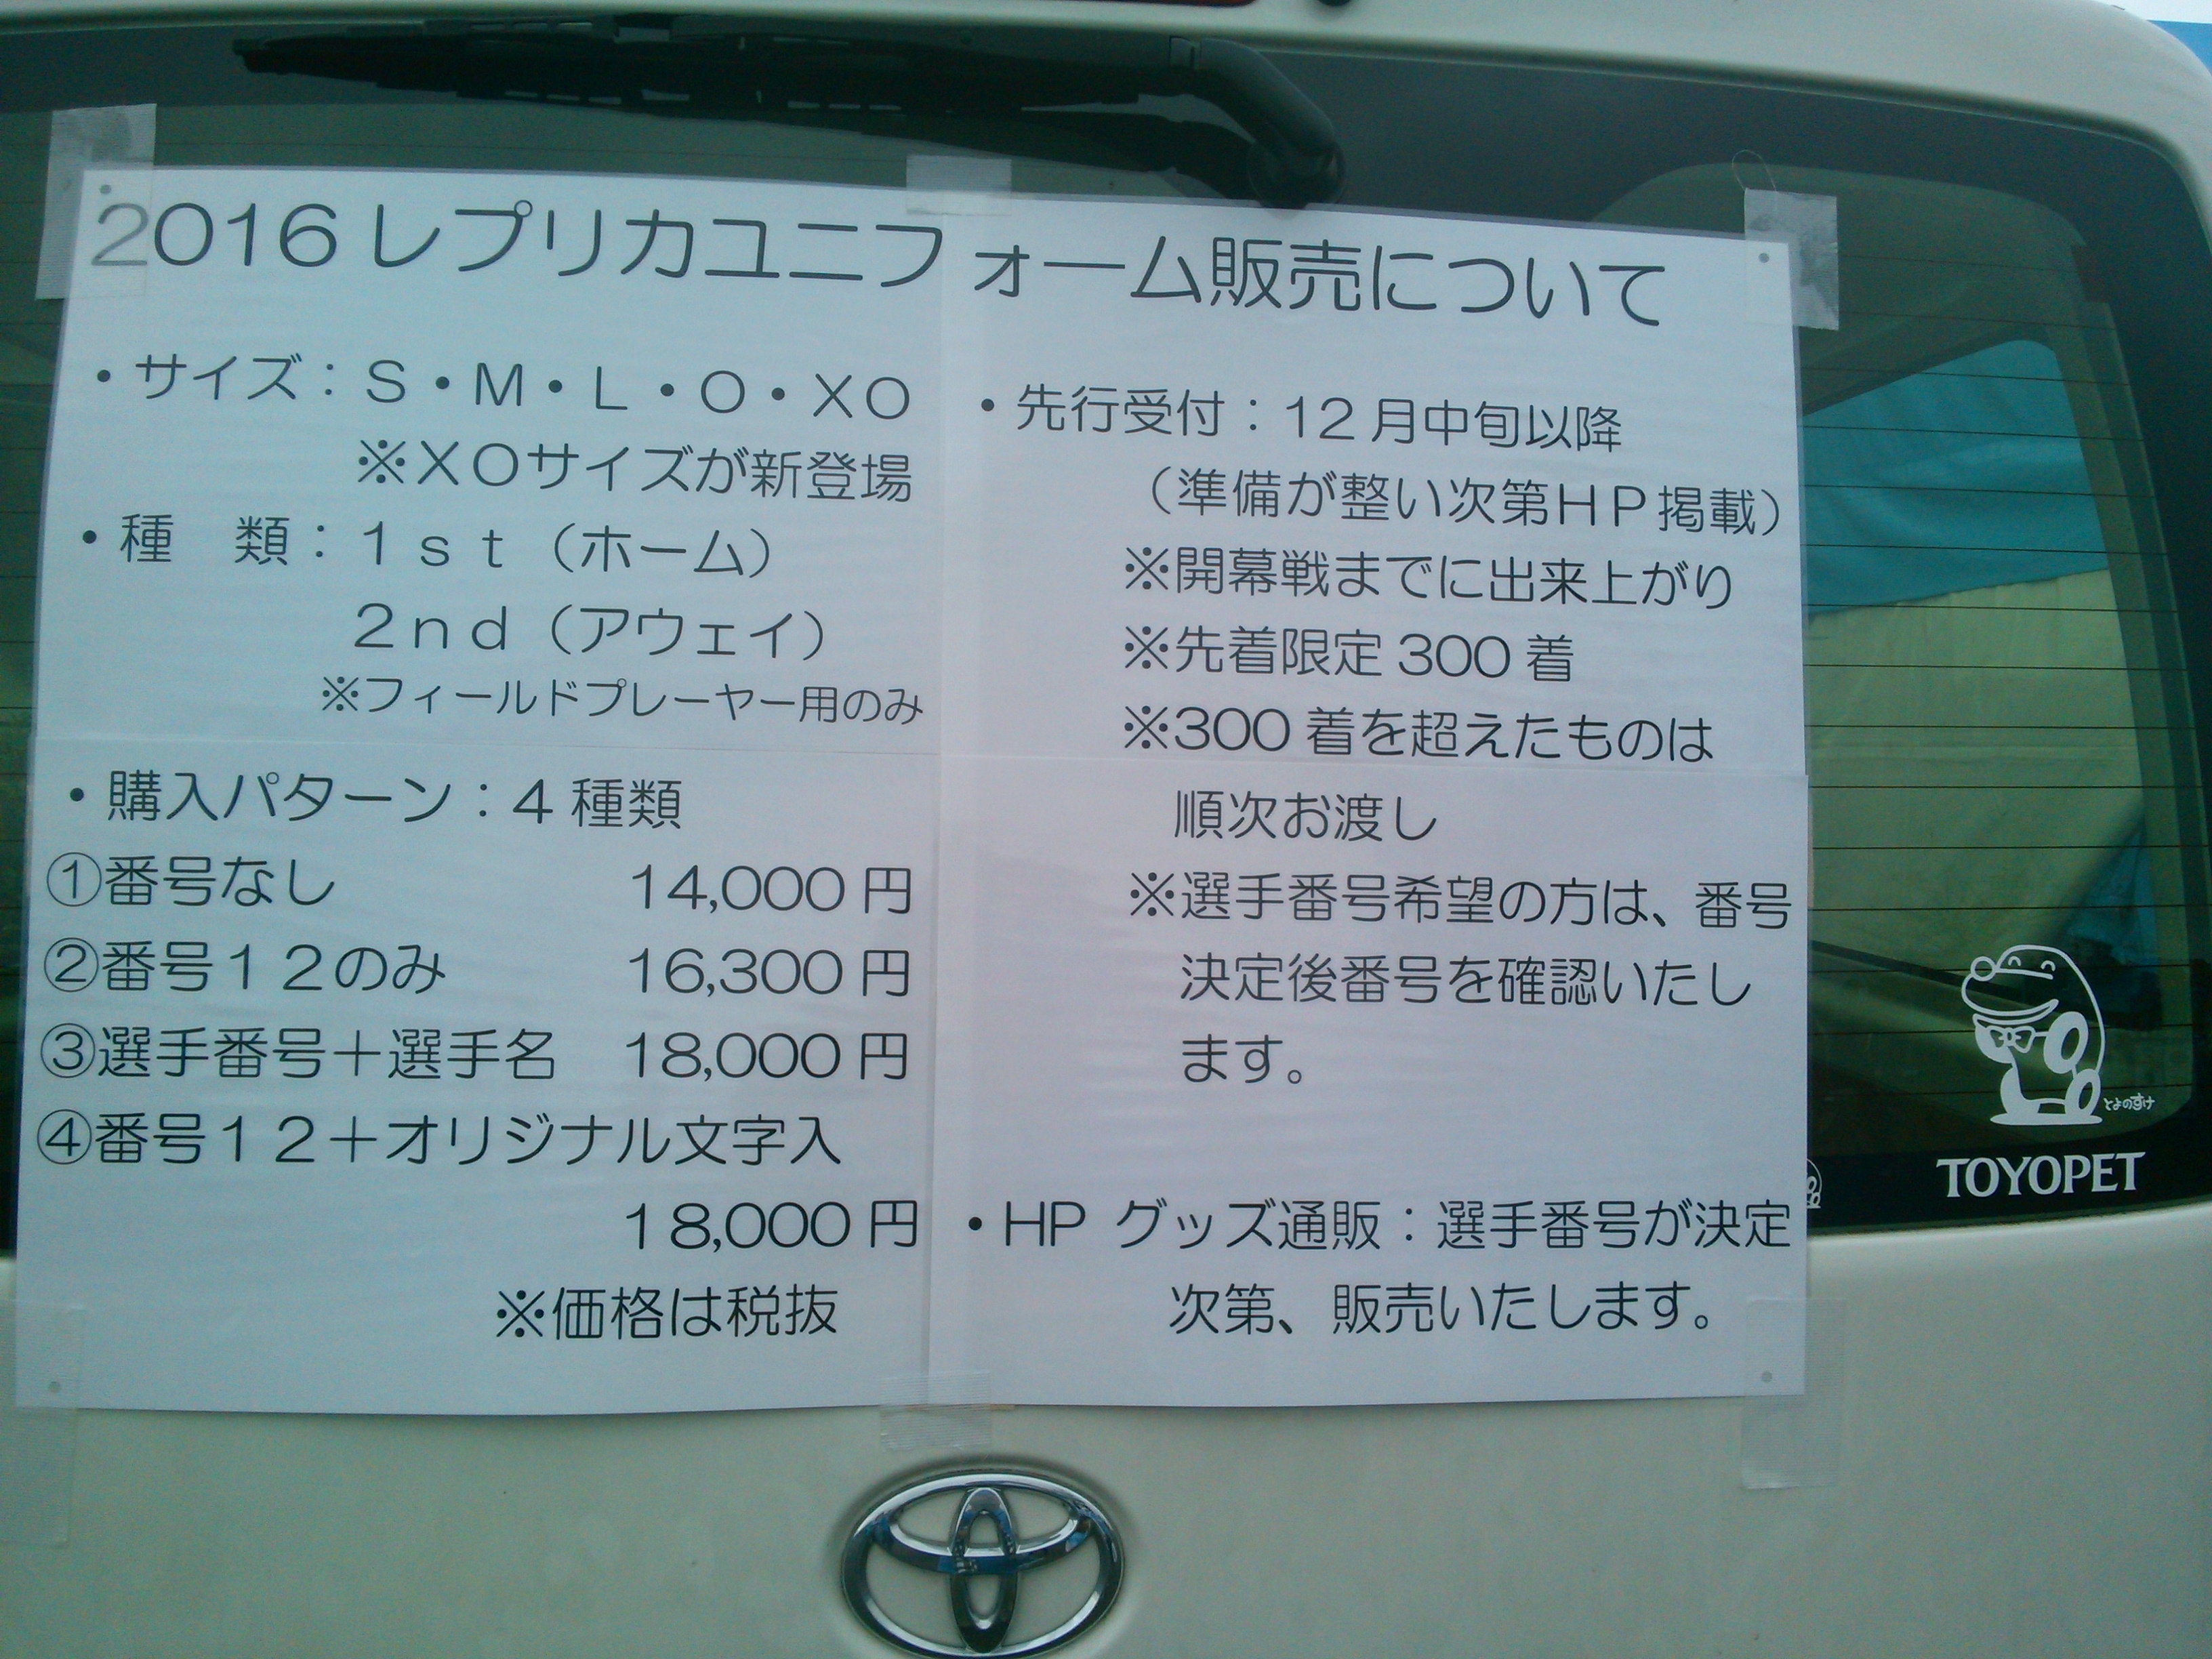 2016レプリカユニフォーム販売について
・サイズ：S・M・L・O・XO
※XOサイズが新登場
・種　類：1st（ホーム）
2nd（アウェイ）
※フィールドプレーヤー用のみ
・購入パターン：4種類
①番号なし　14,000円
②番号12のみ　16,300円
③選手番号＋選手名　18,000円
④番号12＋オリジナル文字入
18,000円
※価格は税抜
・先行受付：12月中旬以降
（準備が整い次第HP掲載）
※開幕戦までに出来上がり
※先着限定300着
※300着を超えたものは
順次お渡し
※選手番号希望の方は、番号
決定後番号を確認いたし
ます。
・HP グッズ通販：選手番号が決定
次第、販売いたします。
とよのすけ
TOYOPET